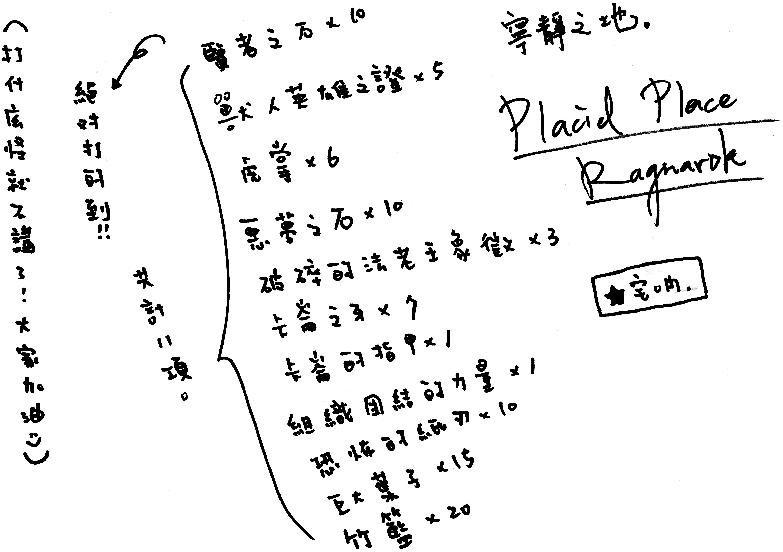 寧靜之地.
Placid Place
Ragnarok
★宅吶.
賢者之石×10
獸人英雄之證×5
虎掌×6
惡夢之石×10
破碎的法老王象徵×3
卡崙之牙×7
卡崙的指甲×1
組織團結的力量×1
恐怖的紙刃×10
巨大葉子×15
竹籃×20
共計11項。
絕對打的到!!
(打什麼怪就不講了!大家加油☺)